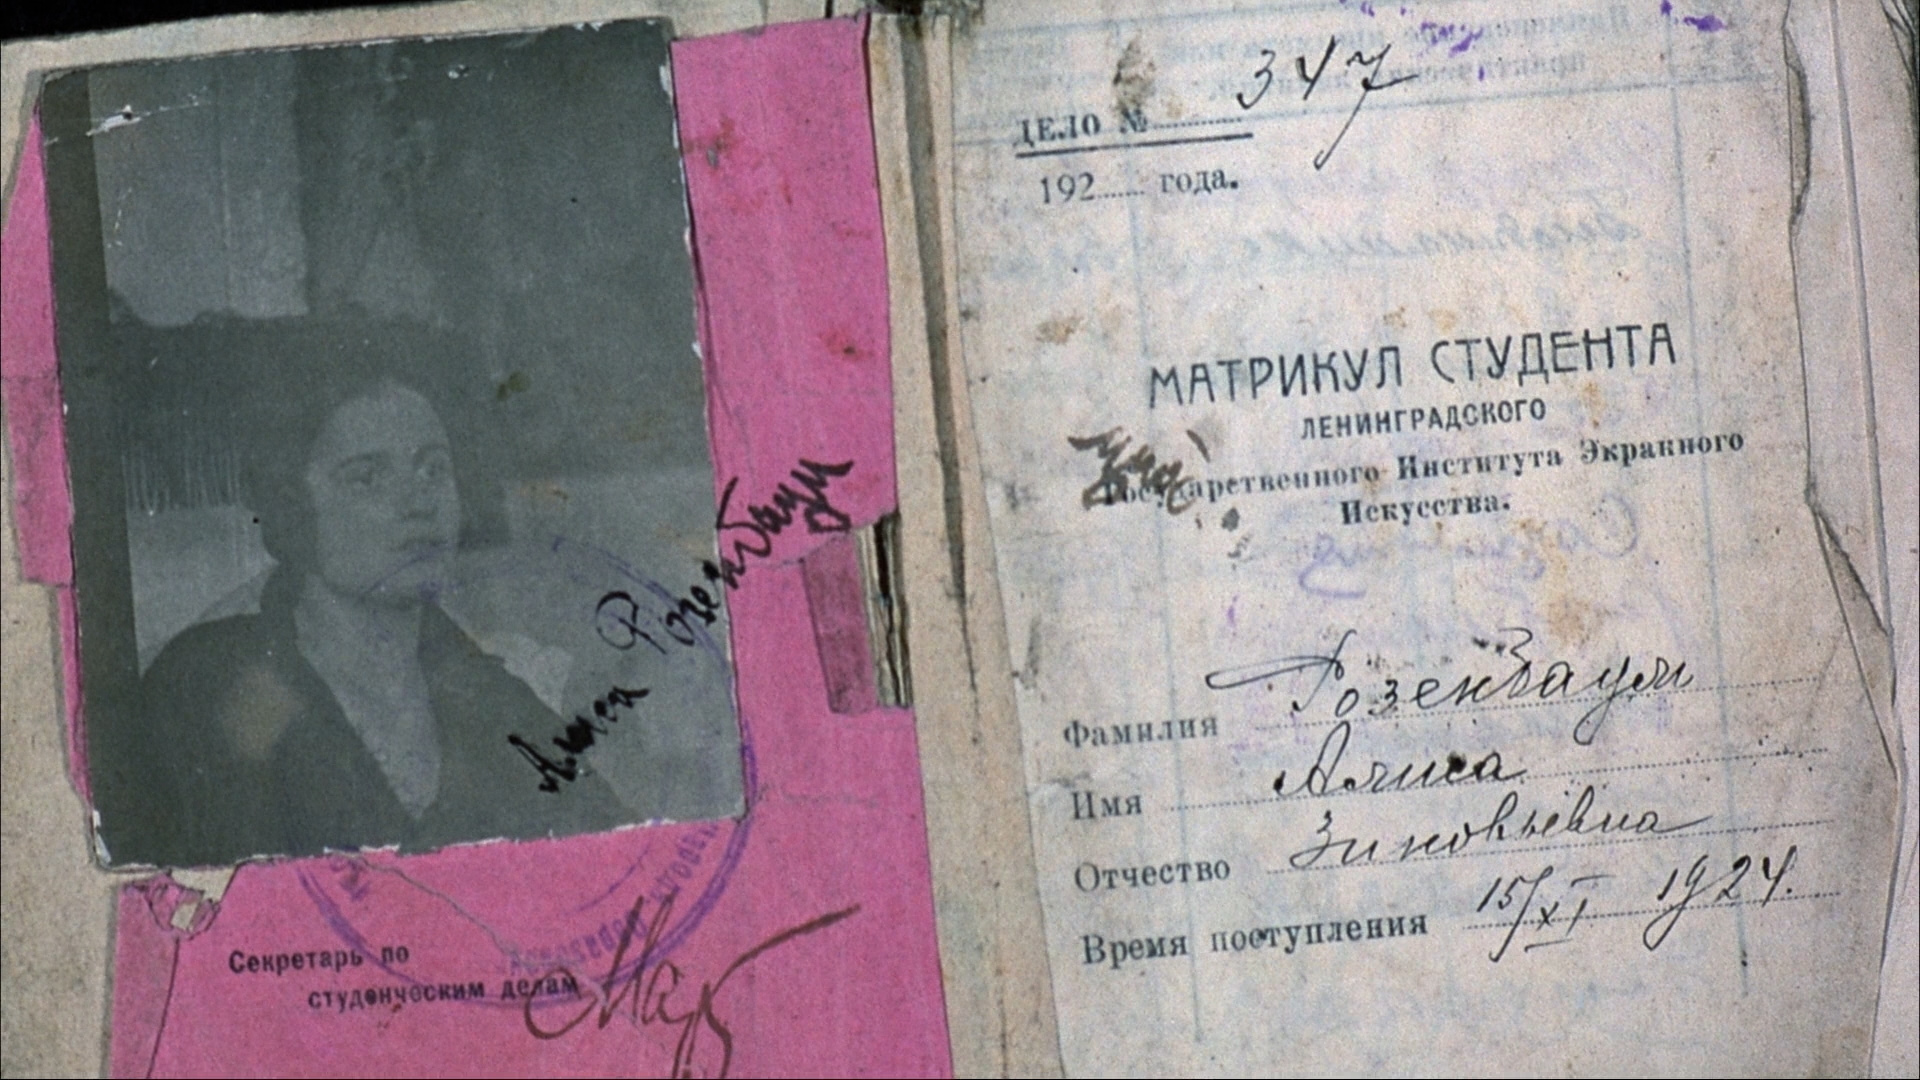 Алиса Розенбаум
Секретарь по
студенческим делам
ДЕЛО № 347
192...... года.
МАТРИКУЛ СТУДЕНТА
ЛЕНИНГРАДСКОГО
Государственного Института Экранного
Искусства.
Фамилия Розенбаум
Имя Алиса
Отчество Зиновьевна
Время поступления 15/XI 1924.